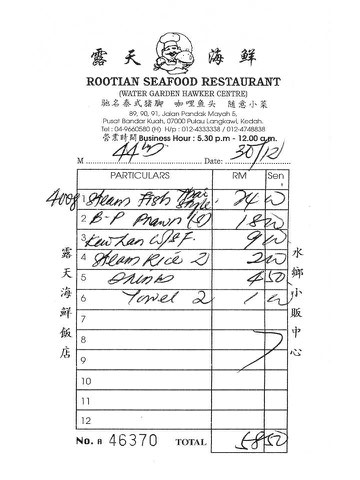 露天海鮮
ROOTIAN SEAFOOD RESTAURANT
(WATER GARDEN HAWKER CENTRE)
馳名泰式豬腳 咖哩魚头 随意小菜
89, 90, 91, Jalan Pandak Mayah 5,
Pusat Bandar Kuah, 07000 Pulau Langkawi, Kedah.
Tel : 04-9660580 (H) H/p : 012-4333338 / 012-4748838
營業時間 Business Hour : 5.30 p.m - 12.00 a.m.
M Date: 30/12/
PARTICULARS RM Sen
400g 1 Steam Fish Thai Style 24 00
2 B-P Prawn (S) 18 00
3 9 00
4 Steam Rice 2 2 00
5 Drinks 4 50
6 Towel 2 1 00
7
8
9
10
11
12
No. A 46370 TOTAL 58 50
露天海鮮飯店
水鄉小販中心